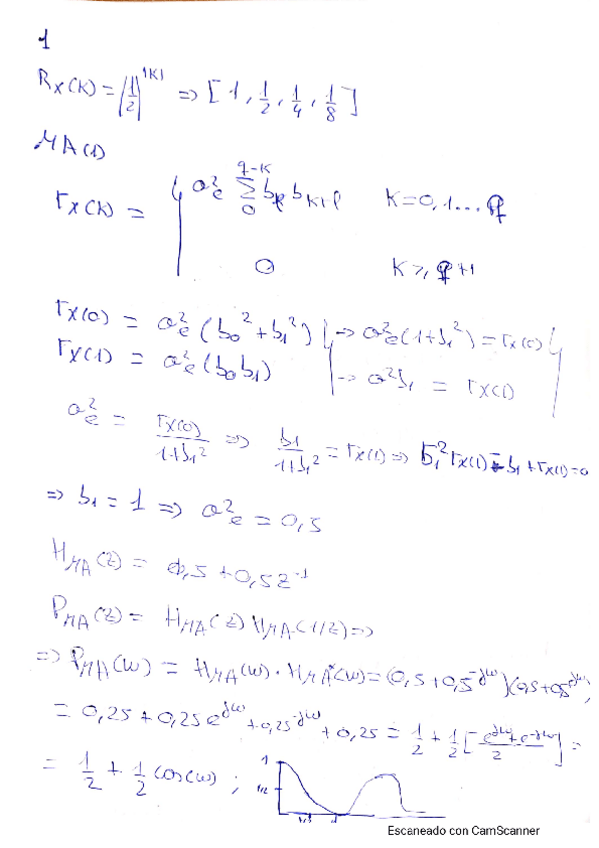 1
Rx(k) = |1/2|^|k| => [1, 1/2, 1/4, 1/8]
MA(1)
rx(k) = { σ²e Σ_0^{q-k} bℓ b_{k+ℓ}   k=0,1...q
0   k ≥ q+1
rx(0) = σ²e (b0² + b1²) } -> σ²e(1+b1²) = rx(0)
rx(1) = σ²e (b0 b1) -> σ²b1 = rx(1)
σ²e = rx(0)/(1+b1²) => b1/(1+b1²) = rx(1) => b1² rx(1) - b1 + rx(1) = 0
=> b1 = 1 => σ²e = 0,5
H_MA(z) = 0,5 + 0,5z^-1
P_MA(z) = H_MA(z) H_MA(1/z) =>
=> P_MA(w) = H_MA(w) · H_MA*(w) = (0,5 + 0,5^-jw)(0,5+0,5e^jw)
= 0,25 + 0,25 e^jw + 0,25^-jw + 0,25 = 1/2 + 1/2 [(e^jw + e^-jw)/2] =
= 1/2 + 1/2 cos(w) ;
1
1/2
Escaneado con CamScanner